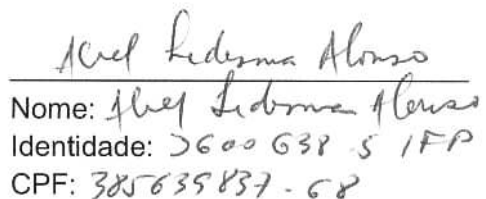 Abel Ledesma Alonso
Nome: Abel Ledesma Alonso
Identidade: 3600638-5 IFP
CPF: 385639837-68